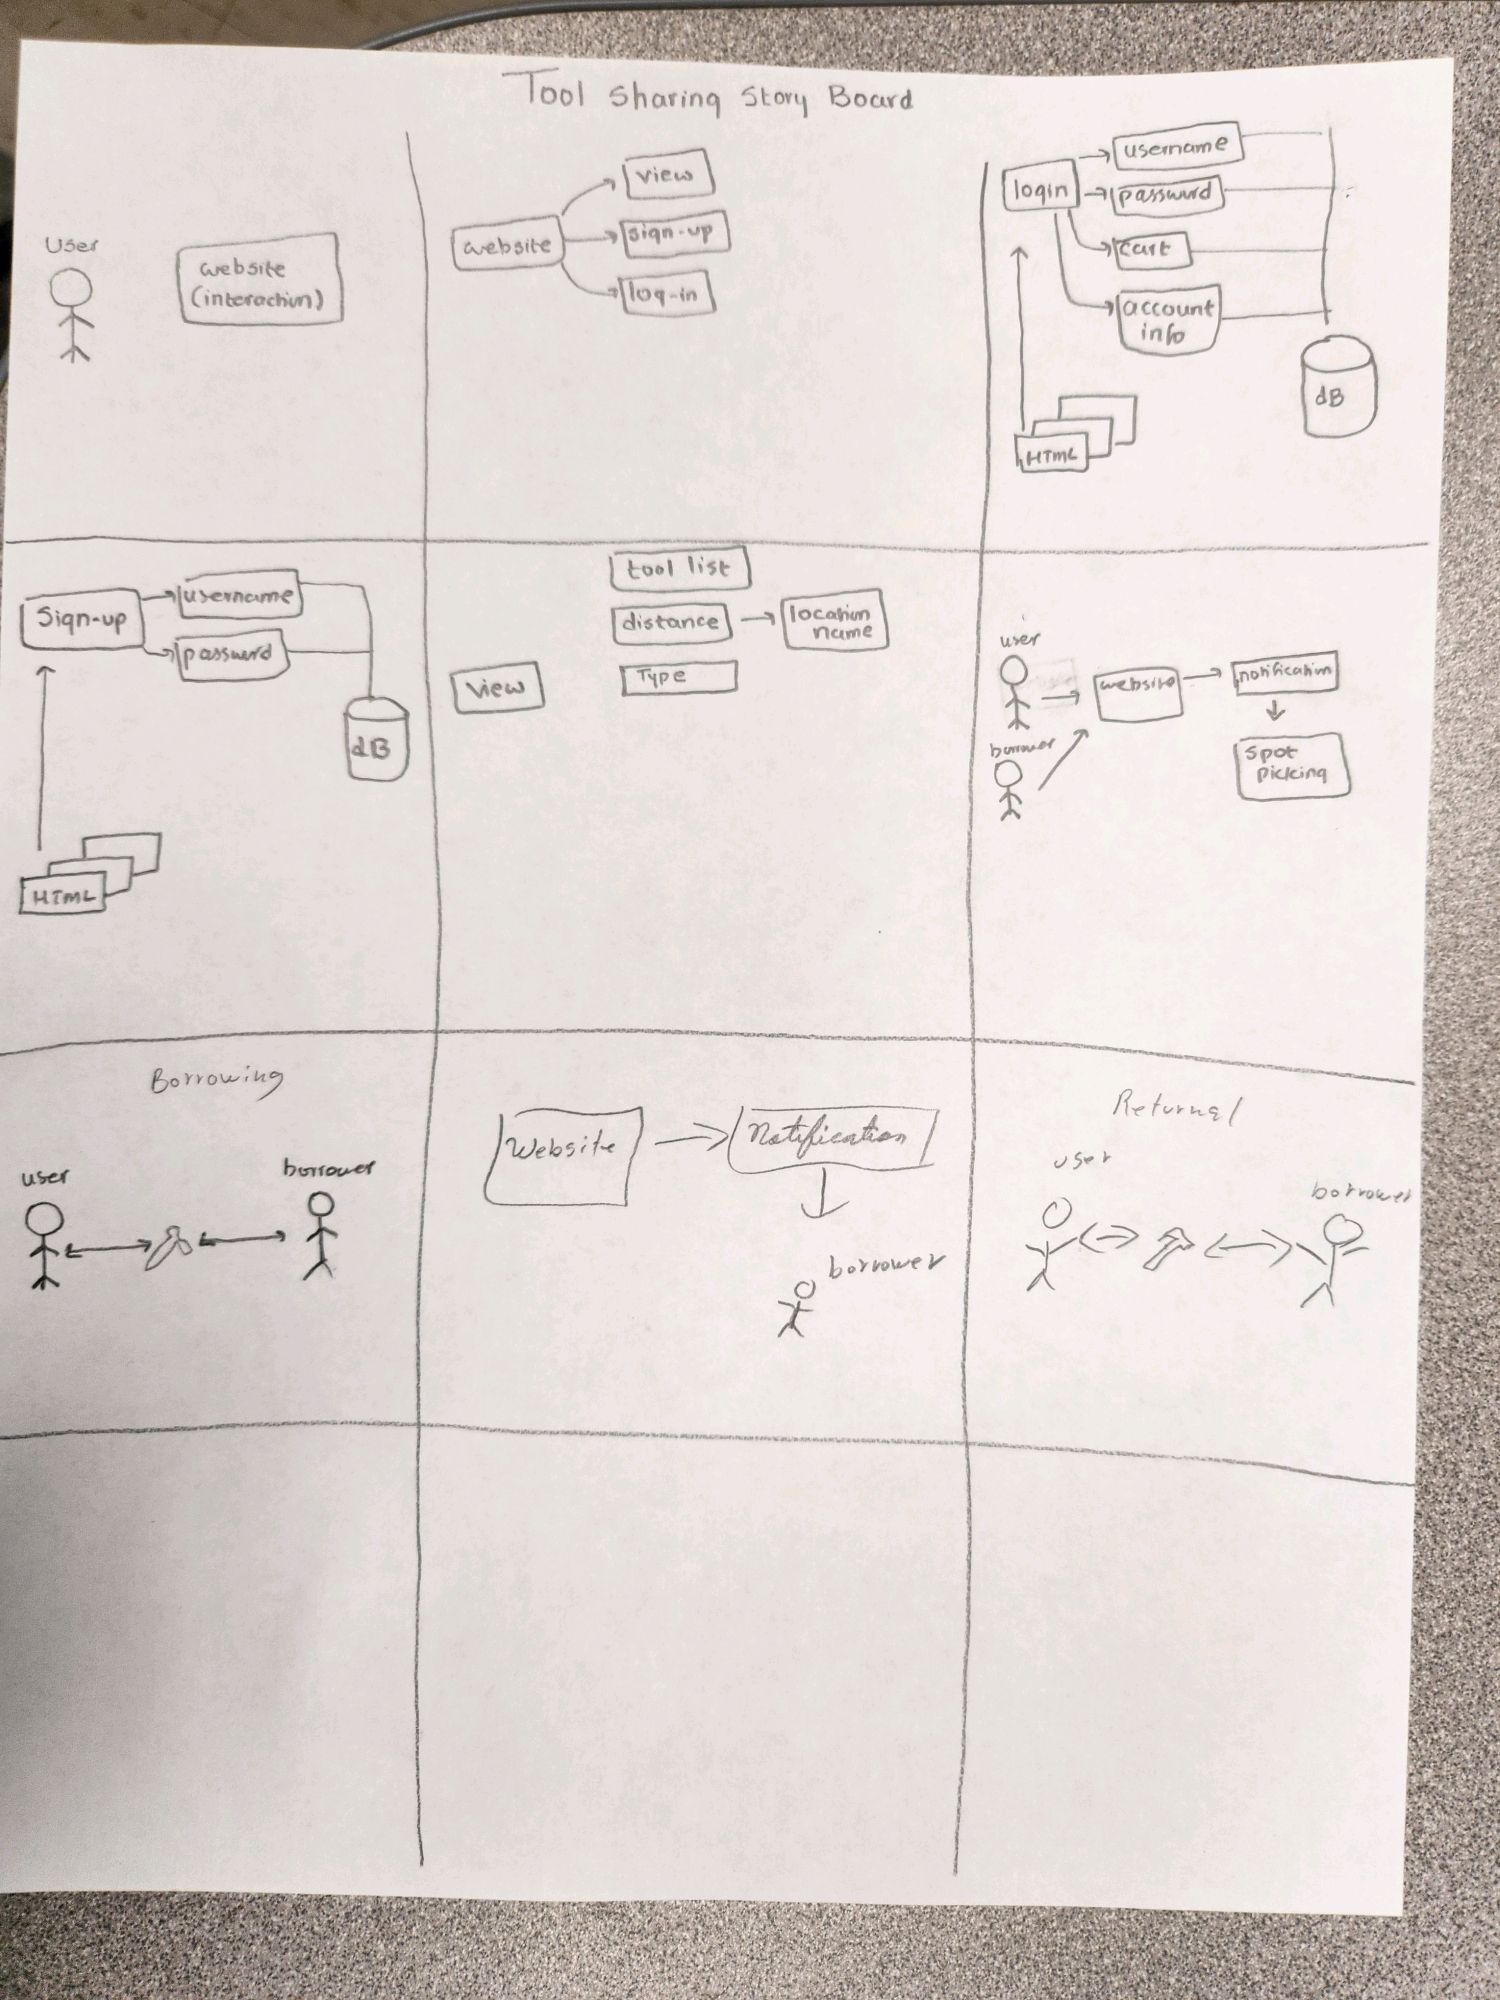 Tool Sharing Story Board
User
website
(interaction)
website
view
sign-up
log-in
login
username
password
cart
account
info
HTML
dB
Sign-up
username
password
dB
HTML
view
tool list
distance
location
name
Type
user
borrower
website
notification
spot
picking
Borrowing
user
borrower
Website
Notification
borrower
Returnal
user
borrower